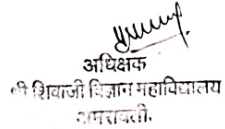 अधिक्षक
श्री शिवाजी विज्ञान महाविद्यालय
अमरावती.